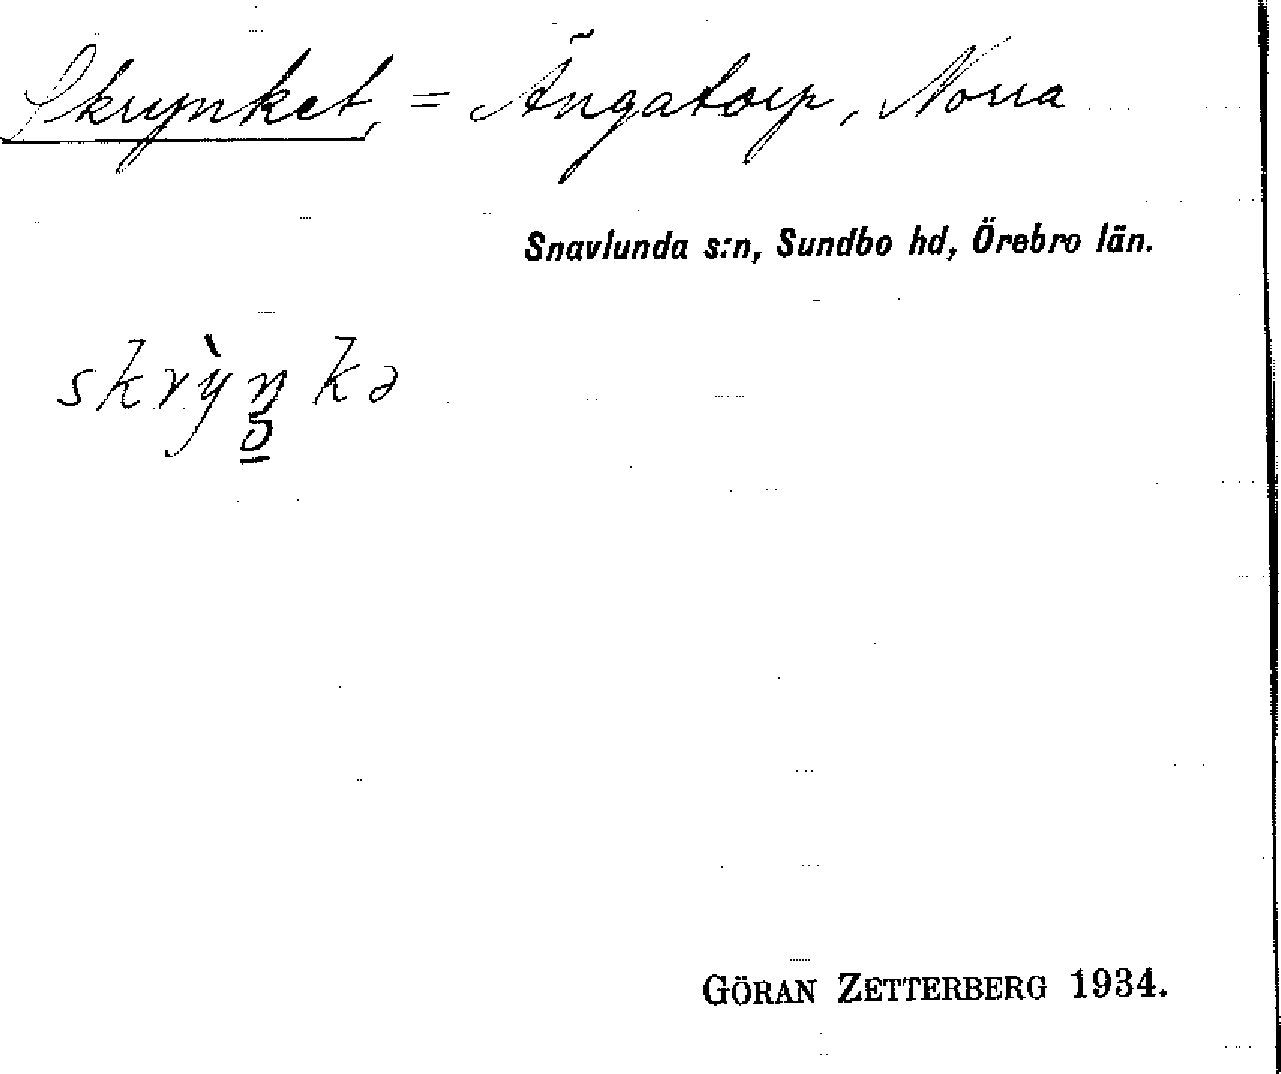 Skrynket, = Ängatorp, Norra
Snavlunda s:n, Sundbo hd, Örebro län.
skrỳŋkə
GÖRAN ZETTERBERG 1934.